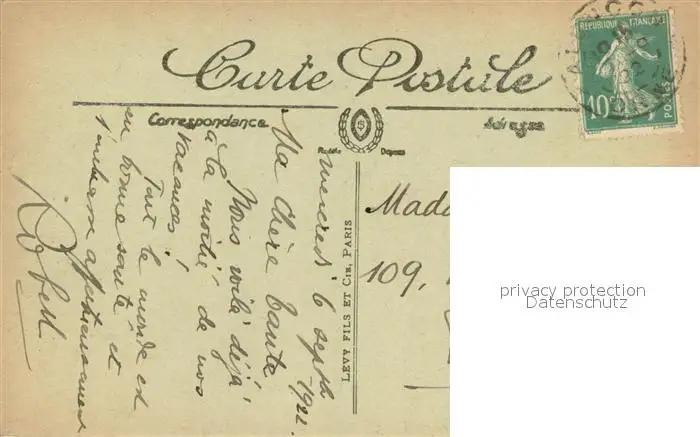 Carte Postale
Correspondance
Adresse
Modèle Déposé
LEVY FILS ET CIE, PARIS
REPUBLIQUE FRANÇAISE
10c
POSTES
mercredi 6 septbre
1922
Ma Chère Tante
Nous voilà déjà
à la moitié de nos
vacances !
Tout le monde est
en bonne santé et
t'embrasse affectueusement
Robert
Mada
109,
privacy protection
Datenschutz